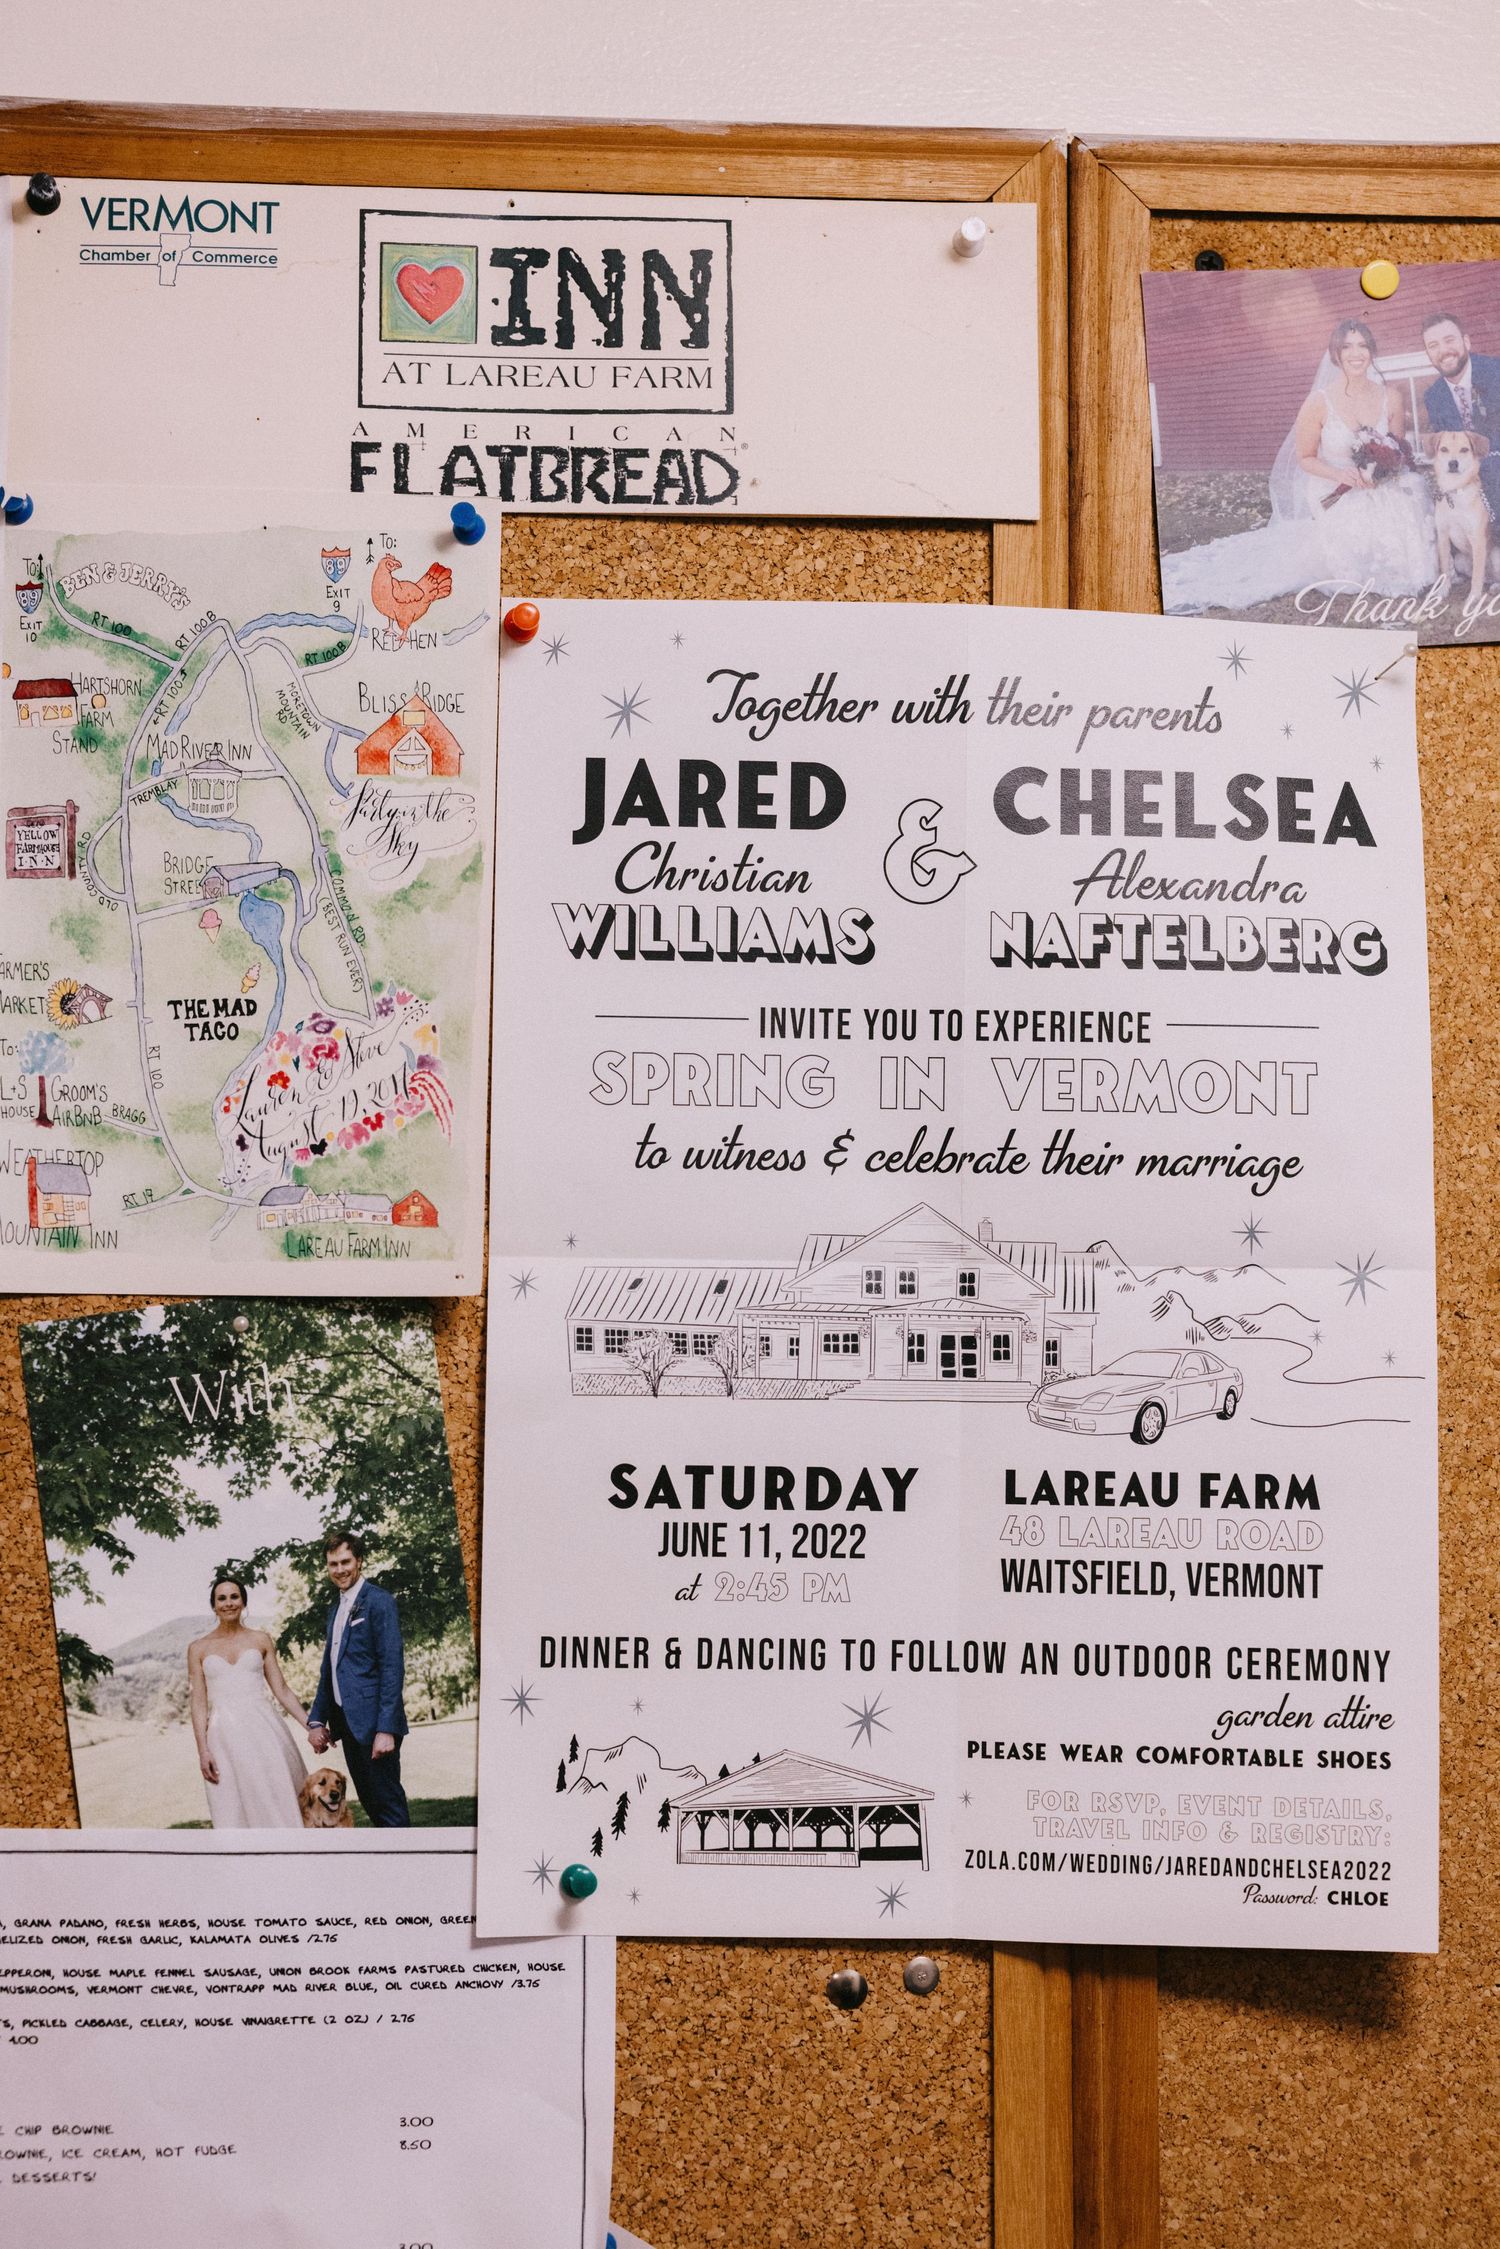 VERMONT
Chamber of Commerce
INN
AT LAREAU FARM
AMERICAN
FLATBREAD®
Thank
To:
89
EXIT
10
BEN & JERRY'S
RT 100
RT 100B
89
EXIT
9
To:
RED HEN
RT 100B
HARTSHORN
FARM
STAND
RT 100S
MORETOWN
MOUNTAIN
RD
BLISS RIDGE
MAD RIVER INN
TREMBLAY
Party in the
Sky
YELLOW
FARMHOUSE
INN
OLD COUNTY RD
BRIDGE
STREET
COMMON RD
(BEST RUN EVER)
MARKET
THE MAD
TACO
To:
L+S
HOUSE
GROOM'S
AIRBNB
BRAGG
RT 100
Lauren & Steve
August 19, 2017
WEATHERTOP
MOUNTAIN INN
RT 17
LAREAU FARM INN
With
Together with their parents
JARED & CHELSEA
Christian Alexandra
WILLIAMS NAFTELBERG
INVITE YOU TO EXPERIENCE
SPRING IN VERMONT
to witness & celebrate their marriage
SATURDAY
JUNE 11, 2022
at 2:45 PM
LAREAU FARM
48 LAREAU ROAD
WAITSFIELD, VERMONT
DINNER & DANCING TO FOLLOW AN OUTDOOR CEREMONY
garden attire
PLEASE WEAR COMFORTABLE SHOES
FOR RSVP, EVENT DETAILS,
TRAVEL INFO & REGISTRY:
ZOLA.COM/WEDDING/JAREDANDCHELSEA2022
Password: CHLOE
, GRANA PADANO, FRESH HERBS, HOUSE TOMATO SAUCE, RED ONION, GREEN
ELIZED ONION, FRESH GARLIC, KALAMATA OLIVES /2.75
EPPERONI, HOUSE MAPLE FENNEL SAUSAGE, UNION BROOK FARMS PASTURED CHICKEN, HOUSE
MUSHROOMS, VERMONT CHEVRE, VONTRAPP MAD RIVER BLUE, OIL CURED ANCHOVY /3.75
S, PICKLED CABBAGE, CELERY, HOUSE VINAIGRETTE (2 OZ) / 2.75
4.00
CHIP BROWNIE 3.00
ROWNIE, ICE CREAM, HOT FUDGE 8.50
DESSERTS!
3.00